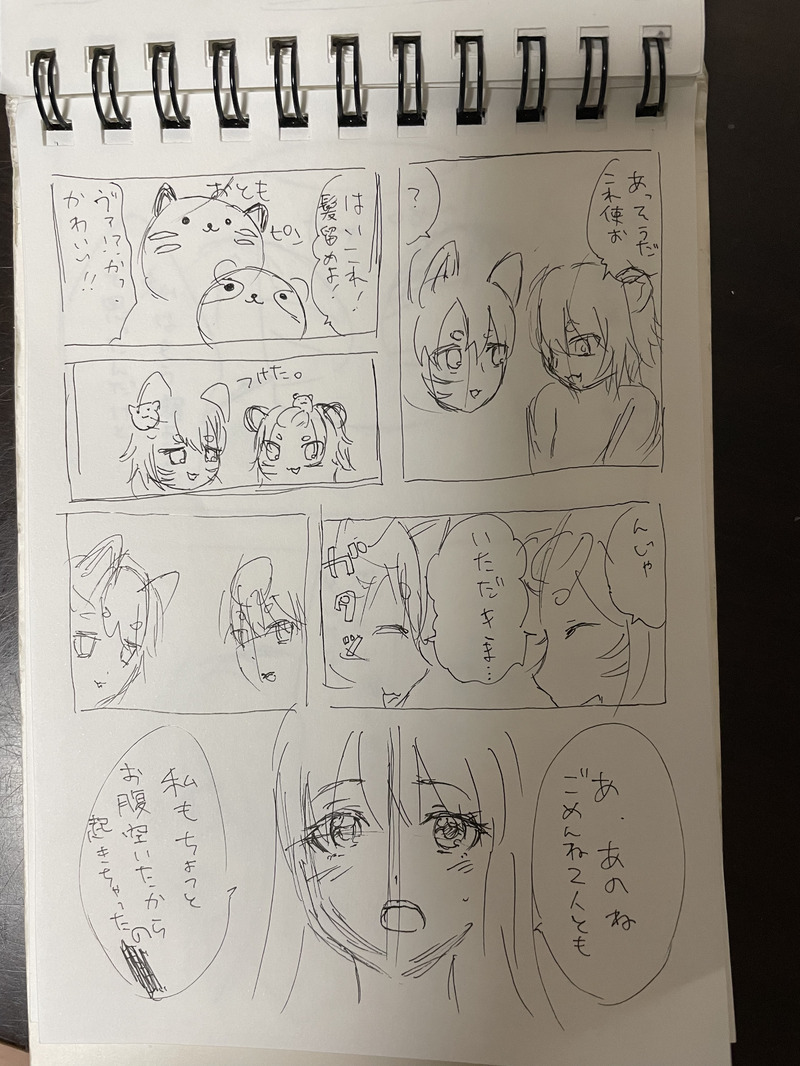 あっそうだ
これ使お
?
はいこれ!
髪留めよ!
おとも
ピン
かわいい!!
つけた。
んじゃ
いただきま…
ガタッ
あ、あのね
ごめんね2人とも
私もちょっと
お腹空いたから
起きちゃったの